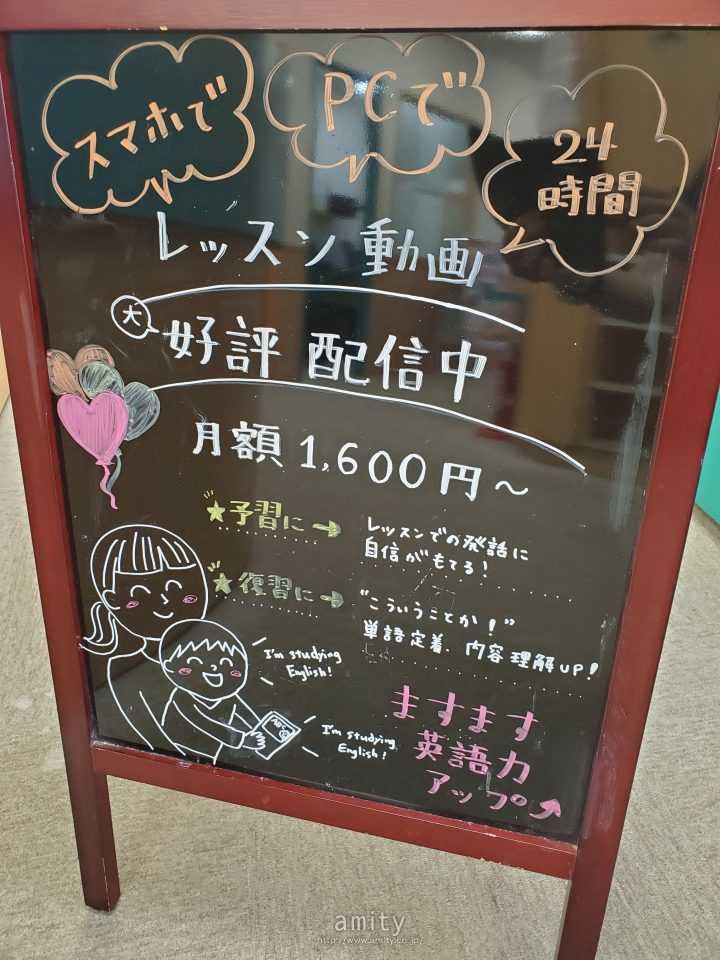 スマホで
PCで
24
時間
レッスン動画
大
好評 配信中
月額1,600円～
★予習に→
レッスンでの発話に
自信がもてる！
★復習に→
"こういうことか！"
単語定着、内容理解UP！
I'm studying
English!
I'm studying
English!
ますます
英語力
アップ↗
amity
http://www.amity.co.jp/